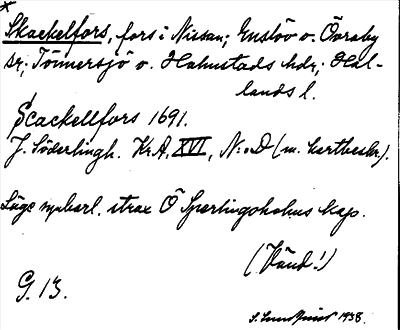 *
Skackelfors, fors i Nissan; Enslöv o. Övraby
sr; Tönnersjö o. Halmstads hdr; Hal-
lands l.
Scackellfors 1691.
J. Söderlingh. KrA, XVI, N:o D (m. kartbeskr.).
Läge uppenbarl. strax Ö Sperlingsholms kap.
(Vänd!)
G. 13.
S. Lundqvist 1938.